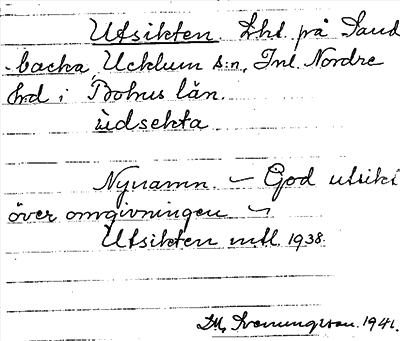 Utsikten. Lht på Sand
-backa, Ucklum s:n, Inl. Nordre
hd i Bohus län.
ùdsekta
Nynamn. — God utsikt
över omgivningen —
Utsikten mtl. 1938.
1941.